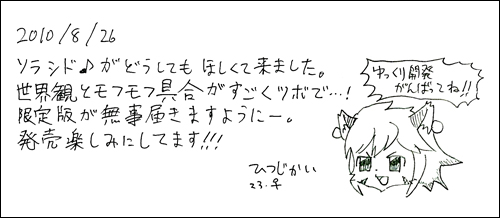 2010/8/26
ソラシド♪がどうしてもほしくて来ました。
世界観とモフモフ具合がすごくツボで…!
限定版が無事届きますようにー。
発売楽しみにしてます!!!
ゆっくり開発
がんばってね!!
ひつじかい
23.♀